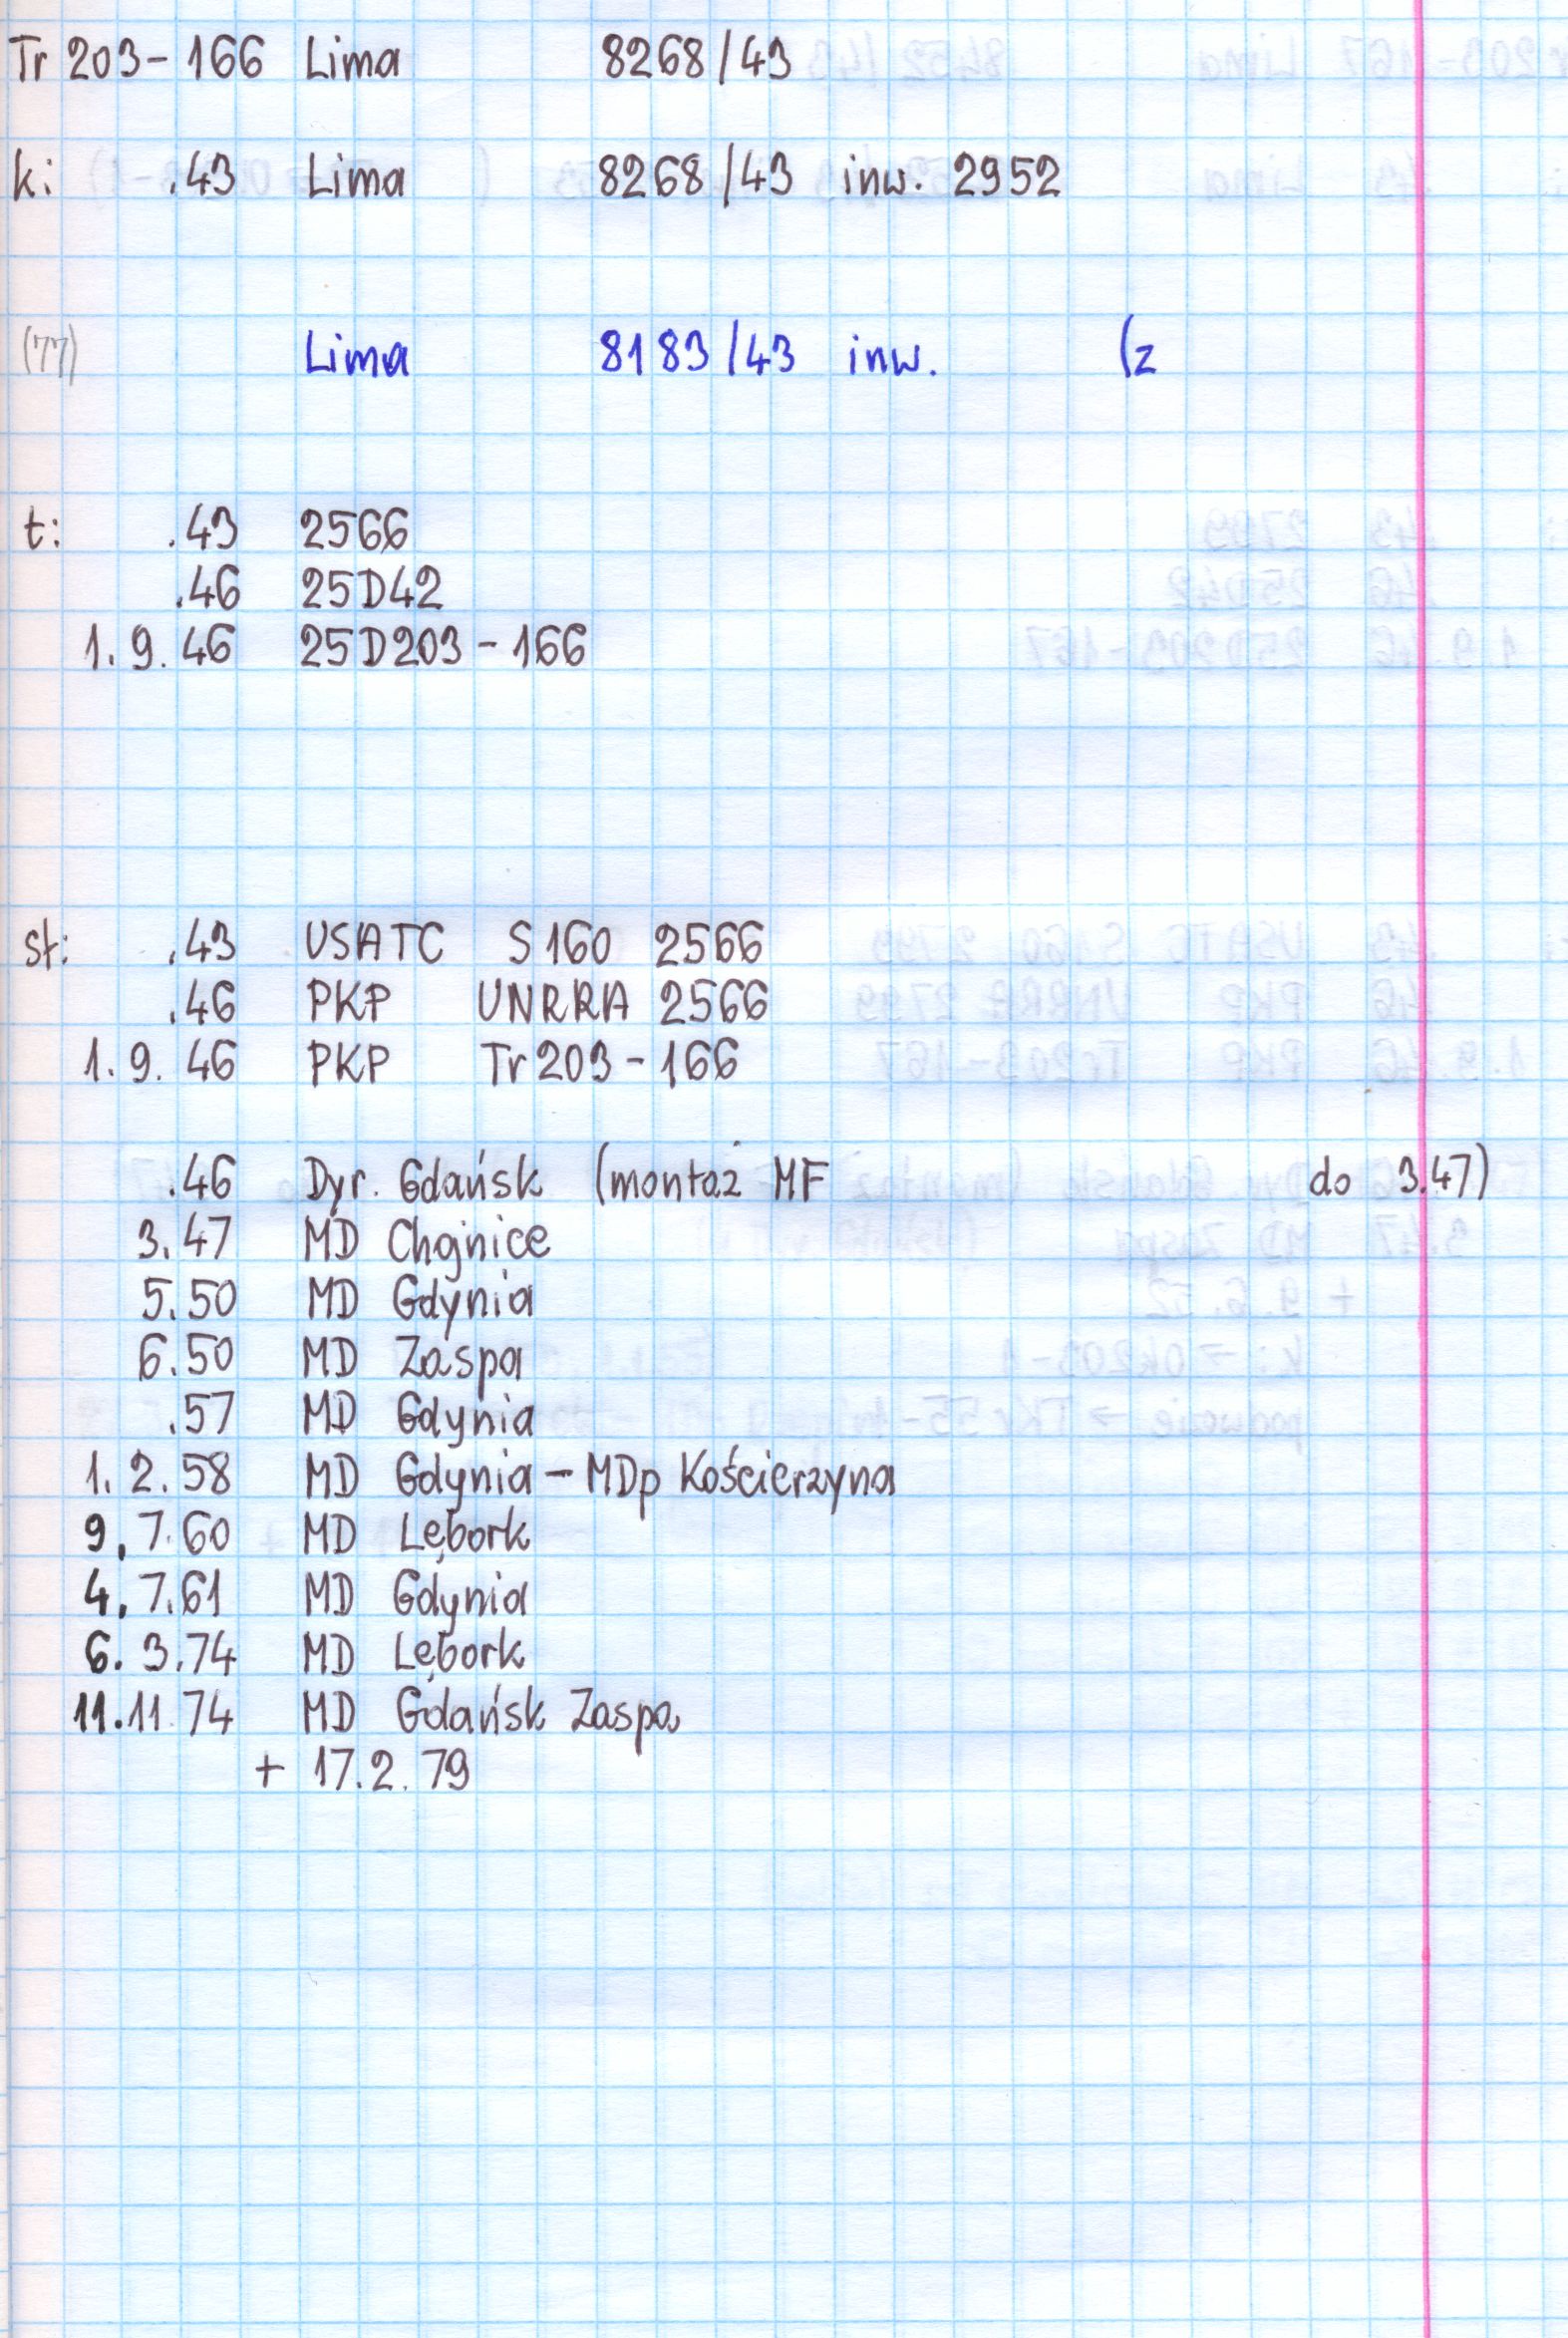 Tr 203-166 Lima 8268/43
k: .43 Lima 8268/43 inw. 2952
(77) Lima 8183/43 inw. (z
t: .43 2566
.46 25D42
1.9.46 25D203-166
st: .43 USATC S160 2566
.46 PKP UNRRA 2566
1.9.46 PKP Tr203-166
.46 Dyr. Gdańsk (montaż MF do 3.47)
3.47 MD Chojnice
5.50 MD Gdynia
6.50 MD Zaspa
.57 MD Gdynia
1.2.58 MD Gdynia - MDp Kościerzyna
9.7.60 MD Lębork
4.7.61 MD Gdynia
6.3.74 MD Lębork
11.11.74 MD Gdańsk Zaspa
+ 17.2.79